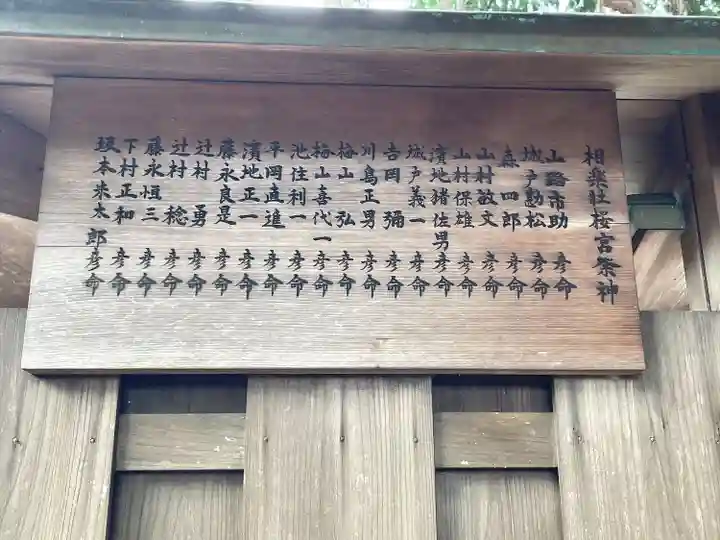 相楽社桜宮祭神
山路市助彦命
城戸勘松彦命
森四郎彦命
山村敏文彦命
山村保雄彦命
濱地猪佐男彦命
城戸義一彦命
吉岡彌彦命
川島正男彦命
梅山弘彦命
梅山喜代一彦命
池住利一彦命
平岡直進彦命
濱地正一彦命
藤永良是彦命
辻村勇彦命
辻村稔彦命
藤永恒三彦命
下村正和彦命
坂本米太郎彦命